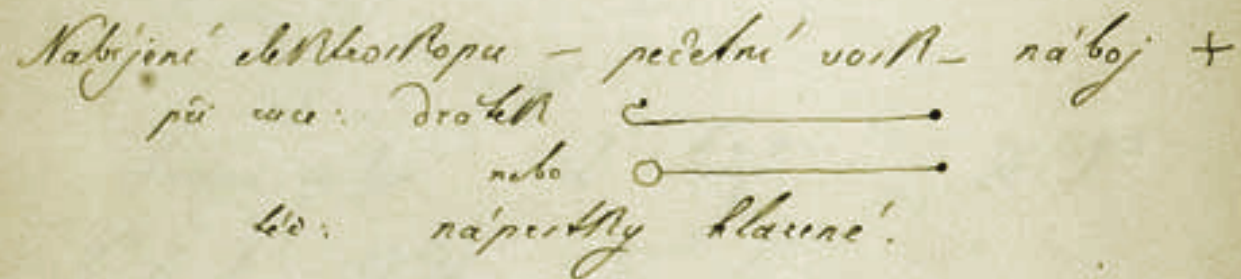 Nabíjení elektroskopu – pečetní vosk – náboj +
při ruce: drátek
nebo
též: náprstky hlazené.